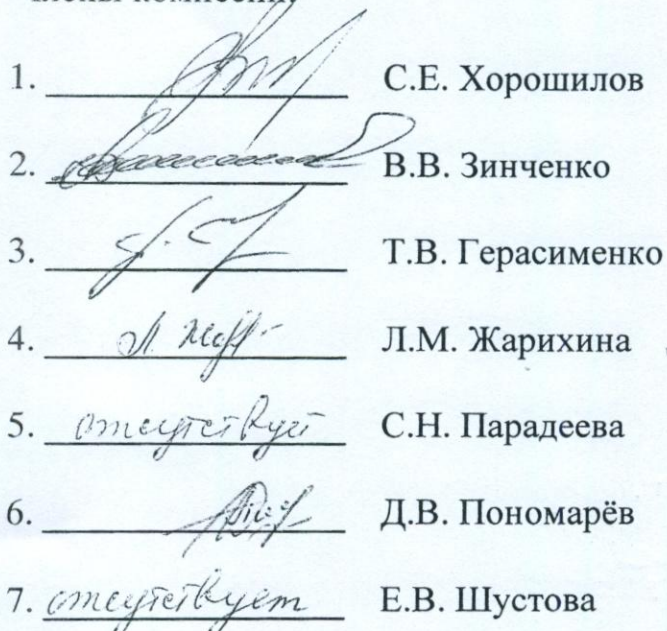 1. С.Е. Хорошилов
2. В.В. Зинченко
3. Т.В. Герасименко
4. Л.М. Жарихина
5. отсутствует С.Н. Парадеева
6. Д.В. Пономарёв
7. отсутствует Е.В. Шустова